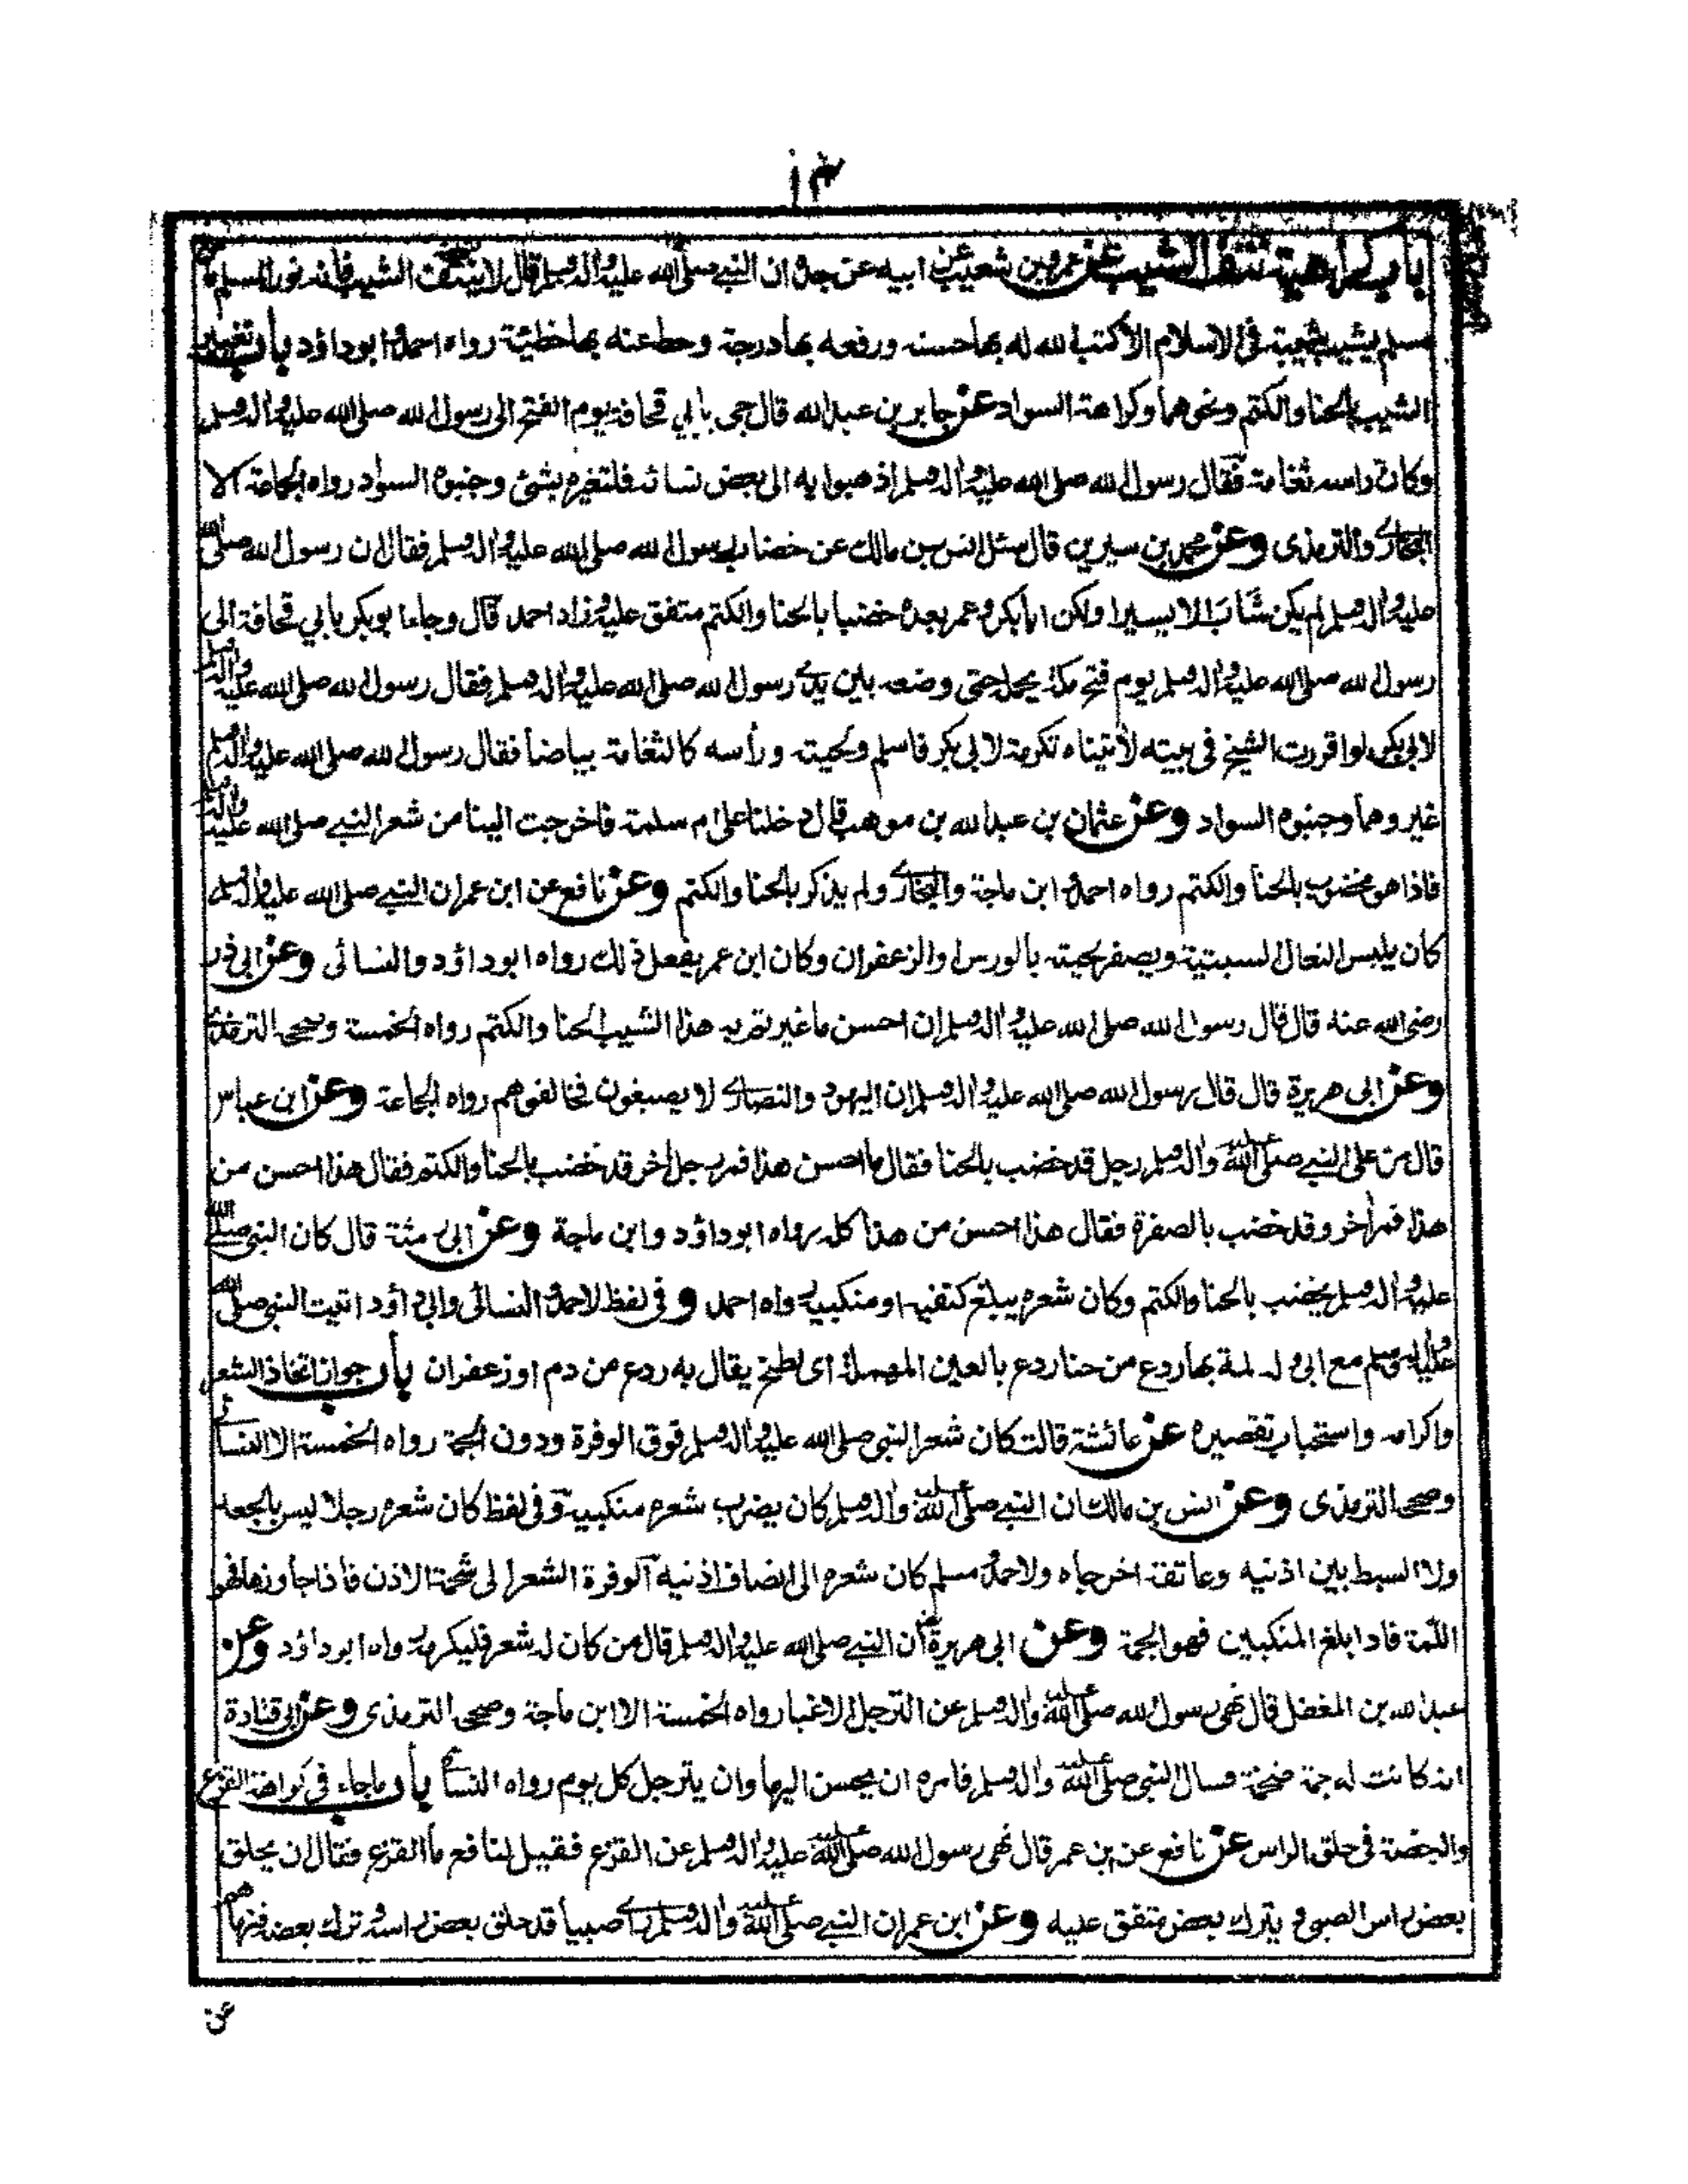 ١٣
باب كراهية نتف الشيب عن عمرو بن شعيب عن ابيه عن جده ان النبي صلى الله عليه واله وسلم قال لا تنتف الشيب فانه نور المسلم ما من
مسلم يشيب شيبة في الاسلام الا كتب الله له بها حسنه ورفعه بها درجة وحط عنه بها خطيئة رواه احمد وابو داؤد باب تغيير
الشيب بالحنا والكتم ونحوهما وكراهة السواد عن جابر بن عبد الله قال جئ بابي قحافة يوم الفتح الى رسول الله صلى الله عليه واله وسلم
وكان راسه ثغامة فقال رسول الله صلى الله عليه واله وسلم اذهبوا به الى بعض نسائه فلتغيره بشئ وجنبوه السواد رواه الجماعة الا
البخارى والترمذى وعن محمد بن سيرين قال سئل انس بن مالك عن خضاب رسول الله صلى الله عليه واله وسلم فقال ان رسول الله صلى الله
عليه واله وسلم لم يكن شاب الا يسيرا ولكن ابا بكر وعمر بعده خضبا بالحنا والكتم متفق عليه زاد احمد قال وجاء ابو بكر بابي قحافة الى
رسول الله صلى الله عليه واله وسلم يوم فتح مكة يحمله حتى وضعه بين يدى رسول الله صلى الله عليه واله وسلم فقال رسول الله صلى الله عليه واله وسلم
لابي بكر لو اقررت الشيخ في بيته لأتيناه تكرمة لابي بكر فاسلم ولحيته ورأسه كالثغامة بياضا فقال رسول الله صلى الله عليه واله وسلم
غيروهما وجنبوه السواد وعن عثمان بن عبد الله بن موهب قال دخلنا على ام سلمة فاخرجت الينا من شعر النبي صلى الله عليه واله وسلم
فاذا هو مخضوب بالحنا والكتم رواه احمد وابن ماجة والبخارى ولم يذكر بالحنا والكتم وعن نافع عن ابن عمر ان النبي صلى الله عليه واله وسلم
كان يلبس النعال السبتية ويصفر لحيته بالورس والزعفران وكان ابن عمر يفعل ذلك رواه ابو داؤد والنسائى وعن ابى ذر
رضى الله عنه قال قال رسول الله صلى الله عليه واله وسلم ان احسن ما غيرتم به هذا الشيب الحنا والكتم رواه الخمسة وصححه الترمذى
وعن ابى هريرة قال قال رسول الله صلى الله عليه واله وسلم ان اليهود والنصارى لا يصبغون فخالفوهم رواه الجماعة وعن ابن عباس
قال مر على النبي صلى الله عليه واله وسلم رجل قد خضب بالحنا فقال ما احسن هذا فمر رجل اخر قد خضب بالحنا والكتم فقال هذا احسن من
هذا فمر أخر وقد خضب بالصفرة فقال هذا احسن من هذا كله رواه ابو داؤد وابن ماجة وعن ابى رمثة قال كان النبى صلى الله
عليه واله وسلم يخضب بالحنا والكتم وكان شعره يبلغ كتفيه او منكبيه رواه احمد وفي لفظ لاحمد والنسائى وابي داؤد اتيت النبى صلى الله
عليه واله وسلم مع ابى وله لمة بها ردع من حنا ردع بالعين المهملة اى لطخ يقال به ردع من دم او زعفران باب جواز اتخاذ الشعر
واكرامه واستحباب تقصيره عن عائشة قالت كان شعر النبى صلى الله عليه واله وسلم فوق الوفرة ودون الجمة رواه الخمسة الا النسائى
وصححه الترمذى وعن انس بن مالك ان النبي صلى الله عليه واله وسلم كان يضرب شعره منكبيه وفي لفظ كان شعره رجلا ليس بالجعد
ولا السبط بين اذنيه وعاتقه اخرجاه ولاحمد ومسلم كان شعره الى انصاف اذنيه الوفرة الشعر الى شحمة الاذن فاذا جاوزها فهو
اللمة فاذا بلغ المنكبين فهو الجمة وعن ابى هريرة ان النبي صلى الله عليه واله وسلم قال من كان له شعر فليكرمه رواه ابو داؤد وعن
عبد الله بن المغفل قال نهى رسول الله صلى الله عليه واله وسلم عن الترجل الا غبا رواه الخمسة الا ابن ماجة وصححه الترمذى وعن ابى قتادة
انه كانت له جمة ضخمة فسال النبى صلى الله عليه واله وسلم فامره ان يحسن اليها وان يترجل كل يوم رواه النسائى باب ماجاء في كراهة القزع
والرخصة في حلق الراس عن نافع عن بن عمر قال نهى رسول الله صلى الله عليه واله وسلم عن القزع فقيل لنافع ما القزع فقال ان يحلق
بعض راس الصبى ويترك بعض متفق عليه وعن ابن عمر ان النبي صلى الله عليه واله وسلم راى صبيا قد حلق بعض راسه وترك بعضه فنهاهم
عن